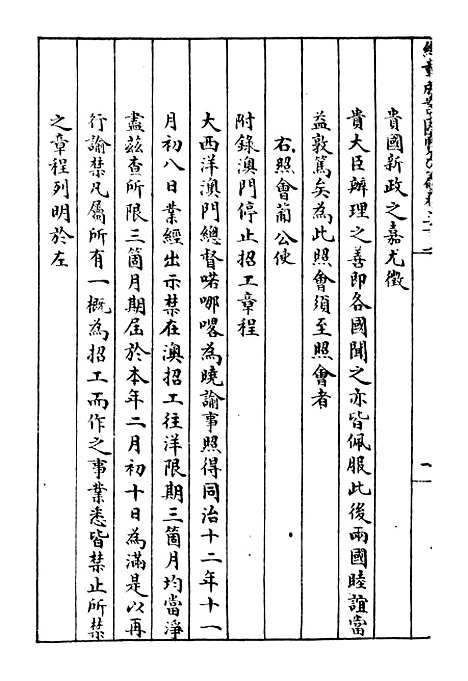 貴國新政之嘉尤徵
貴大臣辦理之善即各國聞之亦皆佩服此後兩國睦誼當
益敦篤矣為此照會須至照會者
右照會葡公使
附錄澳門停止招工章程
大西洋澳門總督喏哪㗉為曉諭事照得同治十二年十一
月初八日業經出示禁在澳招工往洋限期三箇月均當淨
盡茲查所限三箇月期屆於本年二月初十日為滿是以再
行諭禁凡屬所有一概為招工而作之事業悉皆禁止所禁
之章程列明於左